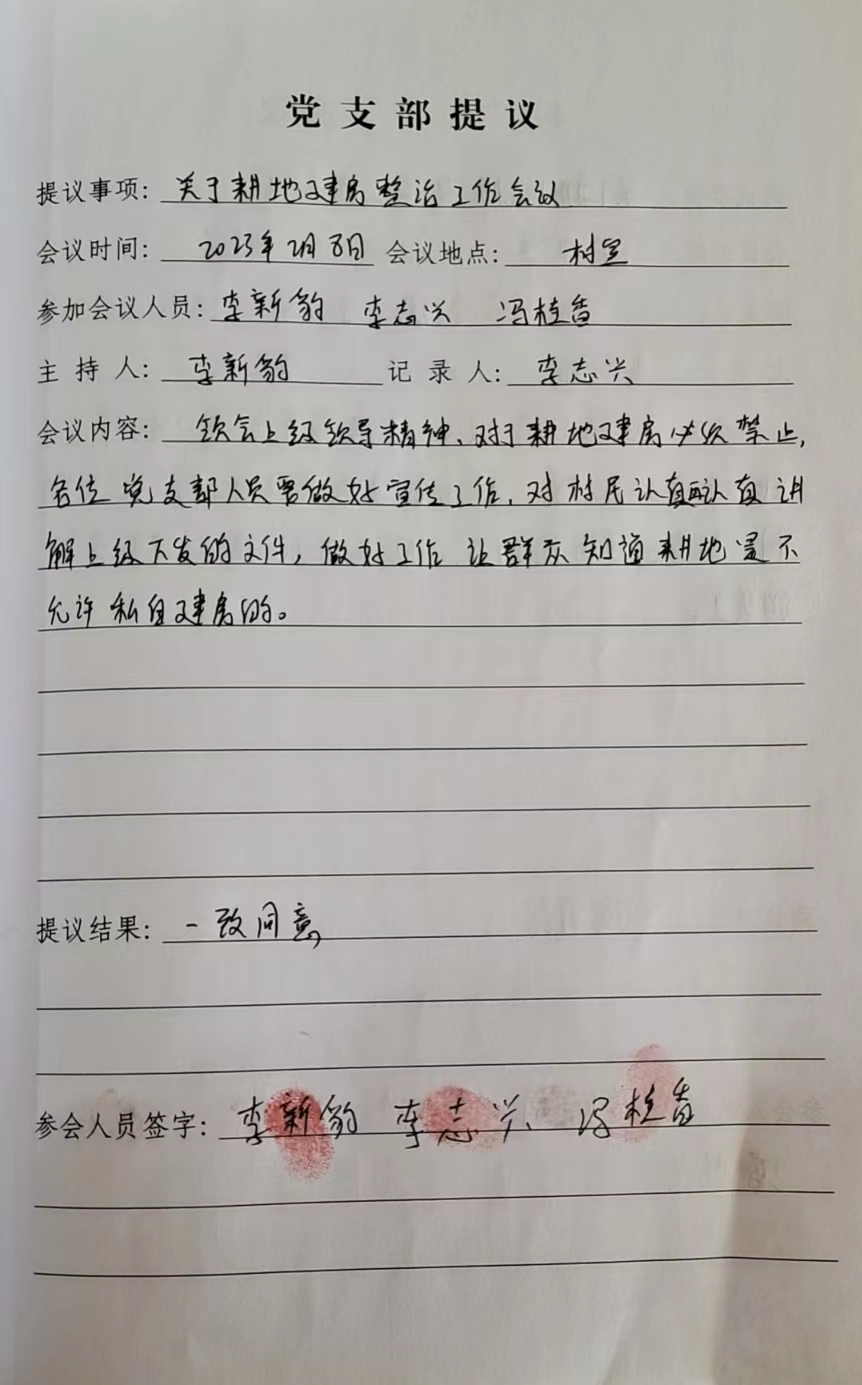 党支部提议
提议事项：关于耕地建房整治工作会议
会议时间：2023年2月8日 会议地点：村室
参加会议人员：李新豹 李志兴 冯桂香
主持人：李新豹 记录人：李志兴
会议内容：领会上级领导精神、对于耕地建房必须禁止，
各位党支部人员要做好宣传工作，对村民认真认真讲
解上级下发的文件，做好工作 让群众知道耕地是不
允许私自建房的。
提议结果：一致同意
参会人员签字：李新豹 李志兴 冯桂香